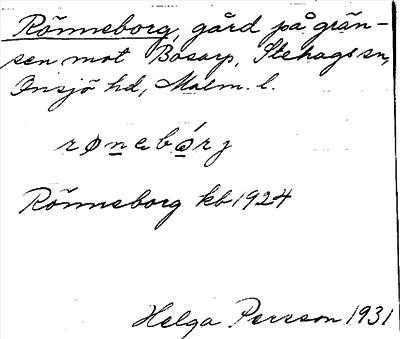 Rönneborg, gård på grän-
sen mot Bosarp, Stehags sn,
Onsjö hd, Malm. l.
rønebórj
Rönneborg kb 1924
Helga Persson 1931